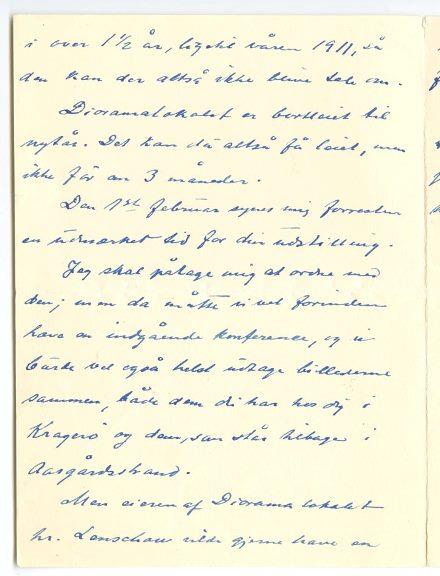 i over 1½ år, ligetil våren 1911, så
den kan der altså ikke blive tale om.
Dioramalokalet er bortleiet til
nytår. Det kan du altså få leiet, men
ikke før om 3 måneder.
Den 1ste februar synes mig forresten
en udmærket tid for din udstilling.
Jeg skal påtage mig at ordne med
den; men da måtte vi vel forinden
have en indgående konference, og vi
burde vel også helst udtage billederne
sammen, både dem du har hos dig i
Kragerø og dem, som står tilbage i
Aasgårdsstrand.
Men eieren af Dioramalokalet
hr. Lonschau vilde gjerne have en